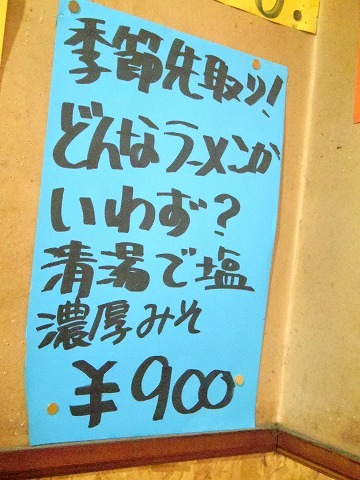 季節先取り!
どんなラーメンか
いわず?
清湯で塩
濃厚みそ
¥900